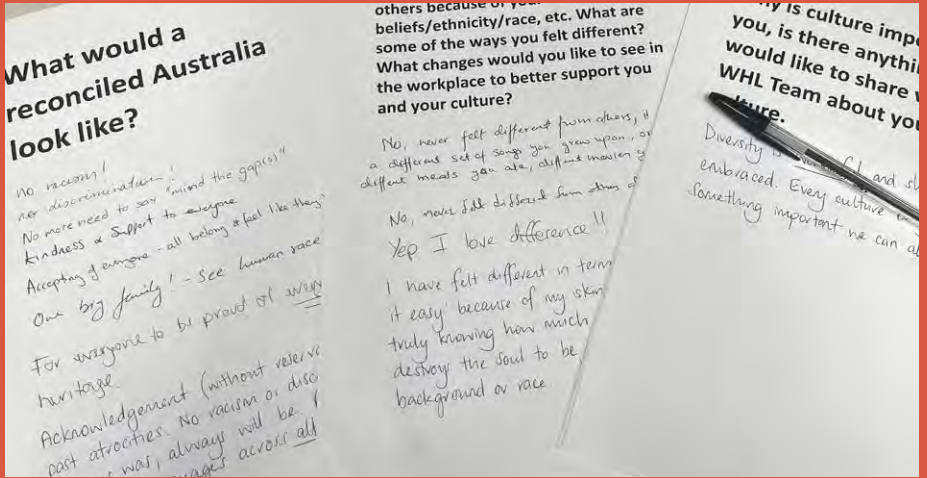 What would a
reconciled Australia
look like?
no racism!
no discrimination!
No more need to say "mind the gap(s)"
kindness & Support to everyone
Accepting of everyone - all belong & feel like they
One big family! - See human race
For everyone to be proud of
heritage.
Acknowledgement (without
past atrocities. No racism or
was, always will be.
across all
others because
beliefs/ethnicity/race, etc. What are
some of the ways you felt different?
What changes would you like to see in
the workplace to better support you
and your culture?
No, never felt different from others, it
a different set of songs you grew upon, or
different meals you ate, different
No, never felt different from
Yep I love difference!!
I have felt different in
it easy' because of my skin
truly knowing how much
destroys the soul to be
background or race
is culture
you, is there
would like to share
WHL Team about
Diversity is and
embraced. Every culture
Something important we can